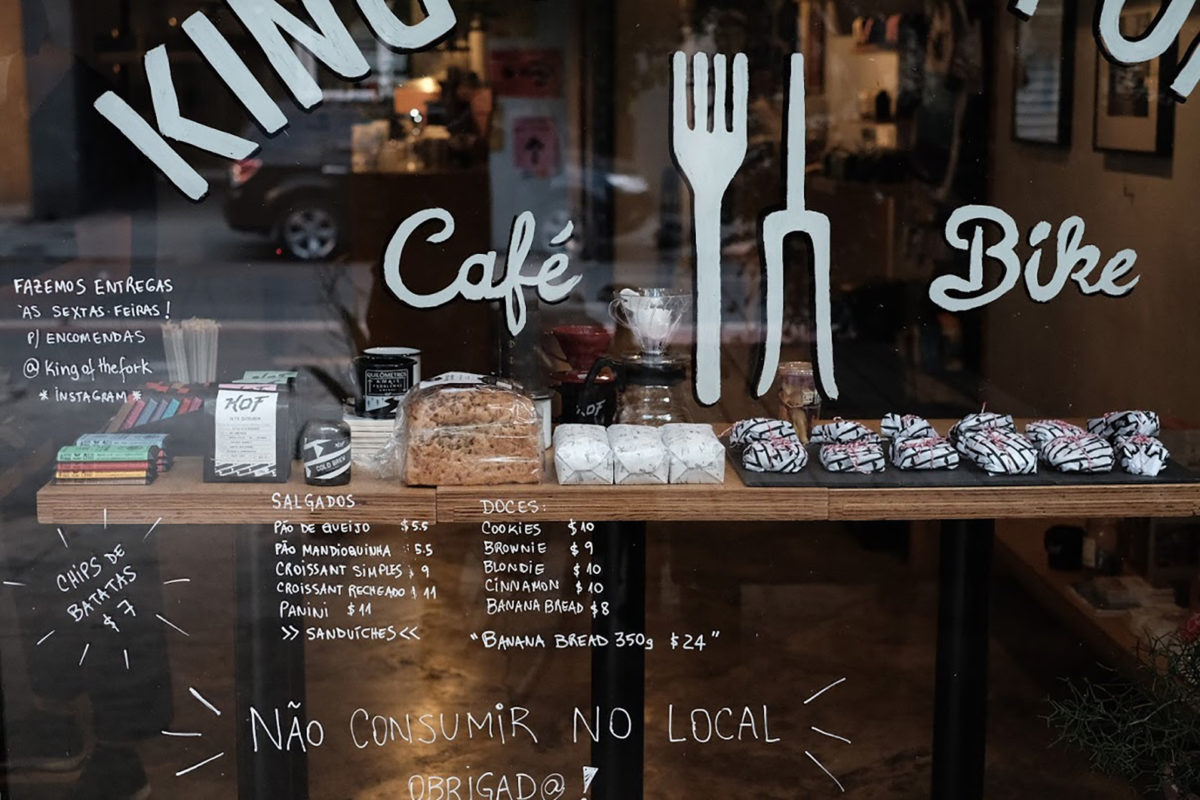 KING
Café
Bike
FAZEMOS ENTREGAS
ÀS SEXTAS-FEIRAS!
P/ ENCOMENDAS
@kingofthefork
*INSTAGRAM*
KOF
COLD BREW
SALGADOS
PÃO DE QUEIJO $5.5
PÃO MANDIOQUINHA $5.5
CROISSANT SIMPLES $9
CROISSANT RECHEADO $11
PANINI $11
>> SANDUÍCHES <<
DOCES:
COOKIES $10
BROWNIE $9
BLONDIE $10
CINNAMON $10
BANANA BREAD $8
"BANANA BREAD 350g $24"
CHIPS DE
BATATAS
$7
NÃO CONSUMIR NO LOCAL
OBRIGAD@!